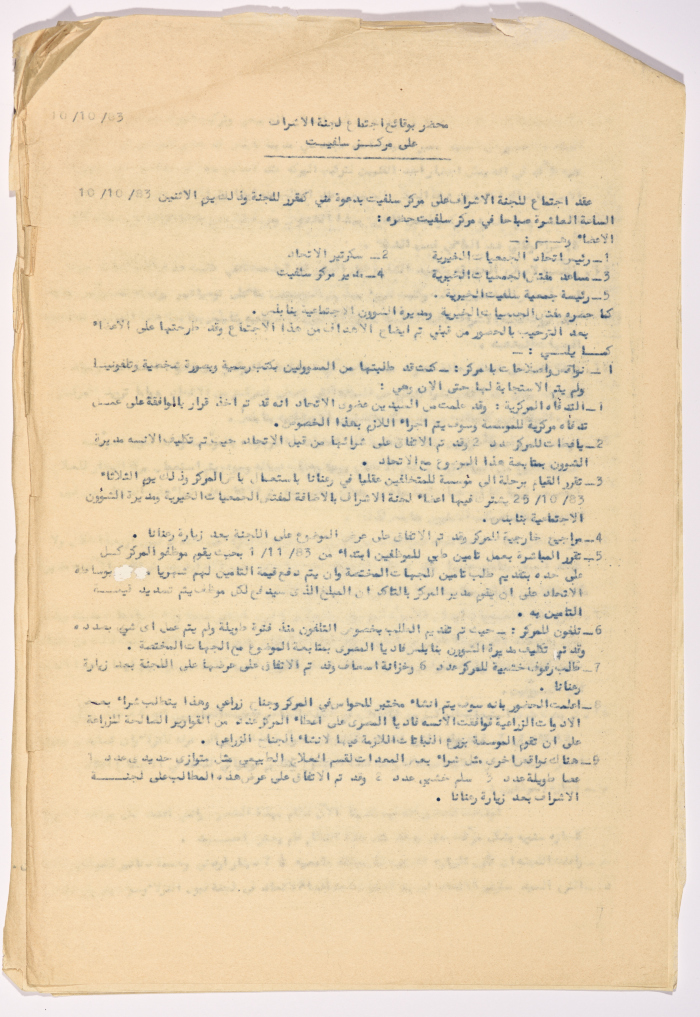 10/10/83
محضر بوقائع اجتماع لجنة الاشراف
على مركز سلفيت
عقد اجتماع للجنة الاشراف على مركز سلفيت بدعوة مني كمقرر للجنة وذلك يوم الاثنين 10/10/83
الساعة العاشرة صباحا في مركز سلفيت حضره :
الاعضاء وهم : ـ
1ـ رئيس اتحاد الجمعيات الخيرية 2ـ سكرتير الاتحاد
3ـ مساعد مفتش الجمعيات الخيرية 4ـ مدير مركز سلفيت
5ـ رئيسة جمعية سلفيت الخيرية .
كما حضره مفتش الجمعيات الخيرية ومديرة الشؤون الاجتماعية بنابلس .
بعد الترحيب بالحضور من قبلي تم ايضاح الاهداف من هذا الاجتماع وقد طرحتها على الاعضاء
كما يلي : ـ
أ ـ نواقص واصلاحات بالمركز : ـ كنت قد طالبتها من المسؤولين بكتب رسمية وبصورة شخصية وتلفونيا
ولم يتم الاستجابة لها حتى الان وهي :
1ـ التدفأه المركزية : وقد علمت من السيدين عضوى الاتحاد انه قد تم اخذ قرار بالموافقة على عمل
تدفأه مركزية للمؤسسة وسوف يتم اجراء اللازم بهذا الخصوص .
2ـ يافطات للمركز عدد 2 وقد تم الاتفاق على شرائها من قبل الاتحاد حيث تم تكليف الانسه مديرة
الشؤون بمتابعة هذا الموضوع مع الاتحاد .
3ـ تقرر القيام برحلة الى مؤسسة للمتخلفين عقليا في رعنانا باستعمال باص المركز وذلك يوم الثلاثاء
25/10/83 يشترك فيها اعضاء لجنة الاشراف بالاضافة لمفتش الجمعيات الخيرية ومديرة الشؤون
الاجتماعية بنابلس .
4ـ مراجيح خارجية للمركز وقد تم الاتفاق على عرض الموضوع على اللجنة بعد زيارة رعنانا .
5ـ تقرر المباشرة بعمل تامين طبي للموظفين ابتداء من 1/11/83 بحيث يقوم موظفو المركز كل
على حده بتقديم طلب تامين للجهات المختصة وان يتم دفع قيمة التامين لهم شهريا . بوساطة
الاتحاد على ان يقوم مدير المركز بالتاكد ان المبلغ الذى سيدفع لكل موظف يتم تسديد قيمة
التامين به .
6ـ تلفون للمركز : ـ حيث تم تقديم الطلب بخصوص التلفون منذ فترة طويلة ولم يتم عمل اى شيء بصدده
وقد تم تكليف مديرة الشؤون بنابلس فاديا المصرى بمتابعة الموضوع مع الجهات المختصة .
7ـ طالب رفوف خشبية للمركز عدد 6 وخزانة اسعاف وقد تم الاتفاق على عرضها على اللجنة بعد زيارة
رعنانا .
8ـ اعلمت الحضور بانه سوف يتم انشاء مختبر للحواس في المركز وجناح زراعي وهذا يتطلب شراء بعض
الادوات الزراعية فوافقت الانسه فاديا المصرى على اعطاء المركز عدد من القوارير الصالحة للزراعة
على ان تقوم المؤسسة بزرع النباتات اللازمة فيها لانشاء الجناح الزراعي .
9ـ هناك نواقص اخرى مثل شراء بعض المعدات لقسم العلاج الطبيعي مثل متوازى حديدى عدد 1
عصا طويلة عدد 5 سلم خشبي عدد 2 وقد تم الاتفاق على عرض هذه المطالب على لجنة
الاشراف بعد زيارة رعنانا .